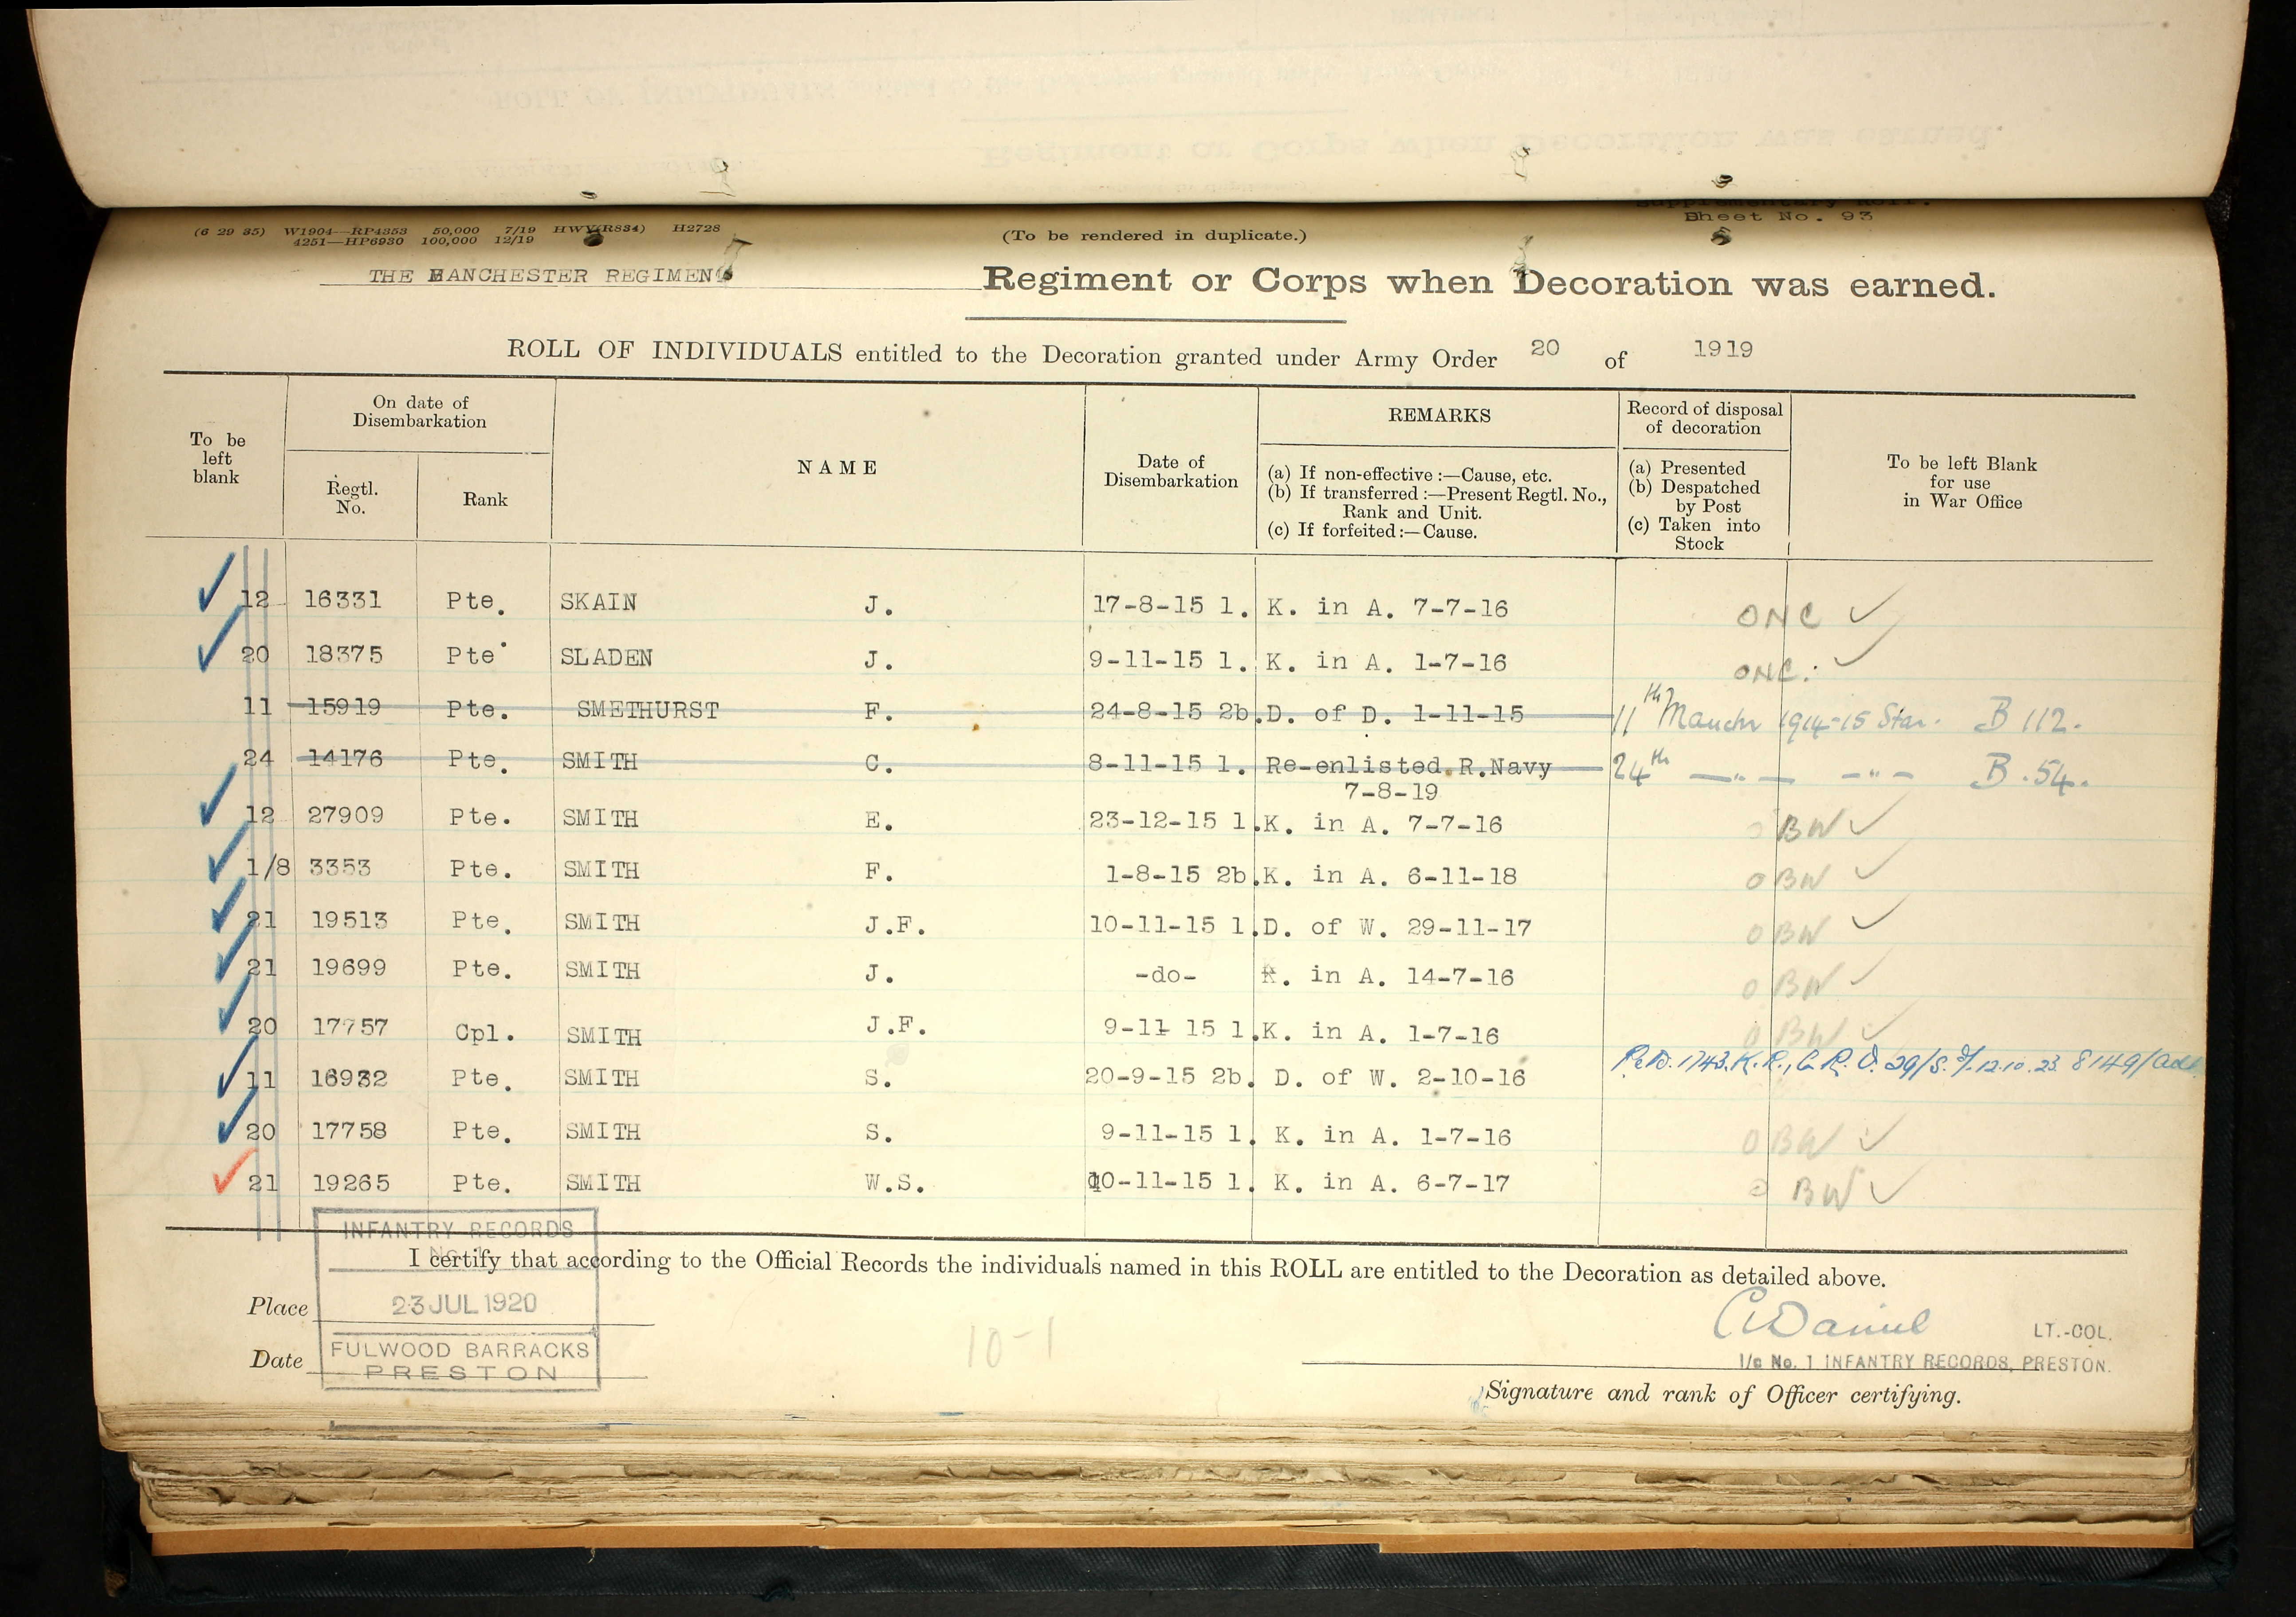 Supplementary Roll.
Sheet No. 93
(6 29 35) W1904—RP4353 50,000 7/19 HWV(R834) H2728
4251—HP6930 100,000 12/19
(To be rendered in duplicate.)
THE MANCHESTER REGIMENT Regiment or Corps when Decoration was earned.
ROLL OF INDIVIDUALS entitled to the Decoration granted under Army Order 20 of 1919
To be left blank
On date of Disembarkation
Regtl. No.
Rank
NAME
Date of Disembarkation
REMARKS
(a) If non-effective :—Cause, etc.
(b) If transferred :—Present Regtl. No., Rank and Unit.
(c) If forfeited :—Cause.
Record of disposal of decoration
(a) Presented
(b) Despatched by Post
(c) Taken into Stock
To be left Blank for use in War Office
12 16331 Pte. SKAIN J. 17-8-15 1. K. in A. 7-7-16 ONC ✓
20 18375 Pte. SLADEN J. 9-11-15 1. K. in A. 1-7-16 ONC. ✓
11 15919 Pte. SMETHURST F. 24-8-15 2b. D. of D. 1-11-15 11th Manchr 1914-15 Star. B 112.
24 14176 Pte. SMITH C. 8-11-15 1. Re-enlisted.R.Navy 24th —"— —"— B.54.
7-8-19
12 27909 Pte. SMITH E. 23-12-15 1. K. in A. 7-7-16 O BW ✓
1/8 3353 Pte. SMITH F. 1-8-15 2b. K. in A. 6-11-18 O BW ✓
21 19513 Pte. SMITH J.F. 10-11-15 1. D. of W. 29-11-17 O BW ✓
21 19699 Pte. SMITH J. -do- K. in A. 14-7-16 O BW ✓
20 17757 Cpl. SMITH J.F. 9-11 15 1. K. in A. 1-7-16 O BW ✓
11 16932 Pte. SMITH S. 20-9-15 2b. D. of W. 2-10-16 1743. K.R., 29/S. 12.10.23 8149/Adt
20 17758 Pte. SMITH S. 9-11-15 1. K. in A. 1-7-16 O BW ✓
21 19265 Pte. SMITH W.S. 10-11-15 1. K. in A. 6-7-17 O BW ✓
INFANTRY RECORDS
No. 1
I certify that according to the Official Records the individuals named in this ROLL are entitled to the Decoration as detailed above.
Place
23 JUL 1920
Date
FULWOOD BARRACKS
PRESTON
10-1
Daniel LT.-COL.
I/c No. 1 INFANTRY RECORDS, PRESTON.
Signature and rank of Officer certifying.